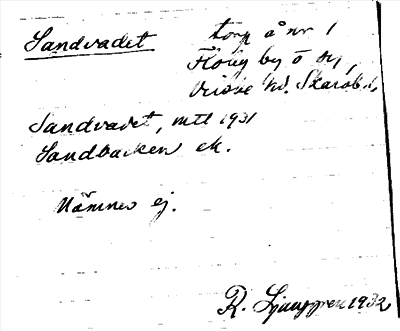 Sandvadet torp å nr 1
Flovig by o sn,
Vilske hd. Skarab. l.
Sandvadet, mtl 1931
Sandbacken ek.
Nämnes ej.
R. Ljunggren 1932